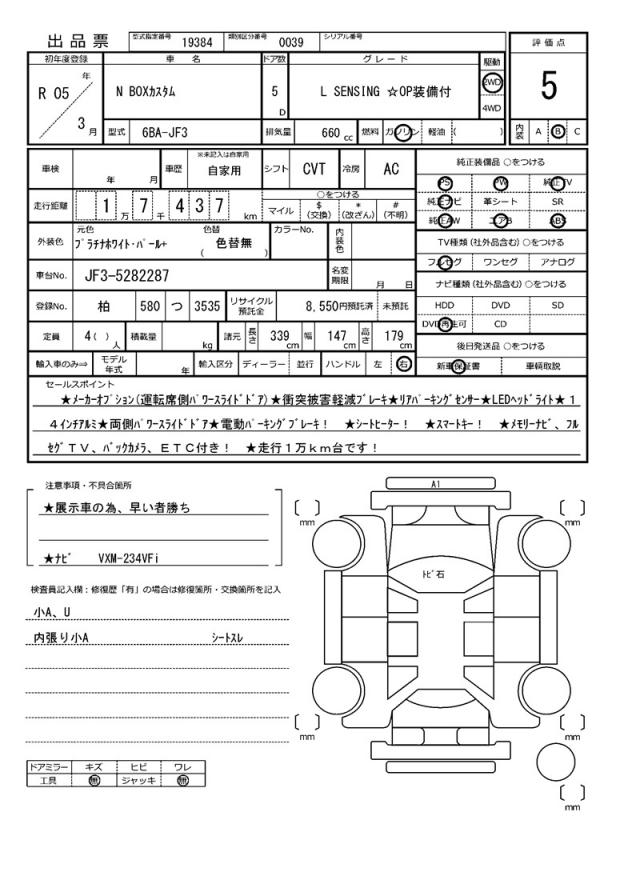 出品票
型式指定番号 19384 類別区分番号 0039 シリアル番号
評価点
5
初年度登録 車名 ドア数 グレード 駆動
R 05 年 3 月
N BOXカスタム 5 D L SENSING ☆OP装備付 2WD
4WD
型式 6BA-JF3 排気量 660 cc 燃料 ガソリン 軽油 ( )
内装 A B C
車検 年 月 車歴 ※未記入は自家用 自家用 シフト CVT 冷房 AC
走行距離 1 万 7 千 4 3 7 km
○をつける
マイル $ (交換) * (改ざん) # (不明)
外装色 元色 プラチナホワイト・パール+ 色替 色替無 ( ) カラーNo. 内装色
車台No. JF3-5282287 名変期限 月 日
登録No. 柏 580 つ 3535 リサイクル預託金 8,550円預託済 未預託
定員 4( ) 人 積載量 kg 諸元 長さ 339 cm 幅 147 cm 高さ 179 cm
輸入車のみ⇒ モデル年式 年 輸入区分 ディーラー 並行 ハンドル 左 右
純正装備品 ○をつける
PS PW 純正TV
純正ナビ 革シート SR
純正AW エアB ABS
TV種類 (社外品含む) ○をつける
フルセグ ワンセグ アナログ
ナビ種類 (社外品含む) ○をつける
HDD DVD SD
DVD再生可 CD
後日発送品 ○をつける
新車保証書 車輌取説
セールスポイント
★メーカーオプション(運転席側パワースライドドア)★衝突被害軽減ブレーキ★リアパーキングセンサー★LEDヘッドライト★1
4インチアルミ★両側パワースライドドア★電動パーキングブレーキ! ★シートヒーター! ★スマートキー! ★メモリーナビ、フル
セグTV、バックカメラ、ETC付き! ★走行1万km台です!
注意事項・不具合箇所
★展示車の為、早い者勝ち
★ナビ VXM-234VFi
検査員記入欄:修復歴「有」の場合は修復箇所・交換箇所を記入
小A、U
内張り小A シートスレ
ドアミラー キズ ヒビ ワレ
工具 無 ジャッキ 無
A1
トビ石
mm
mm
mm
mm
mm